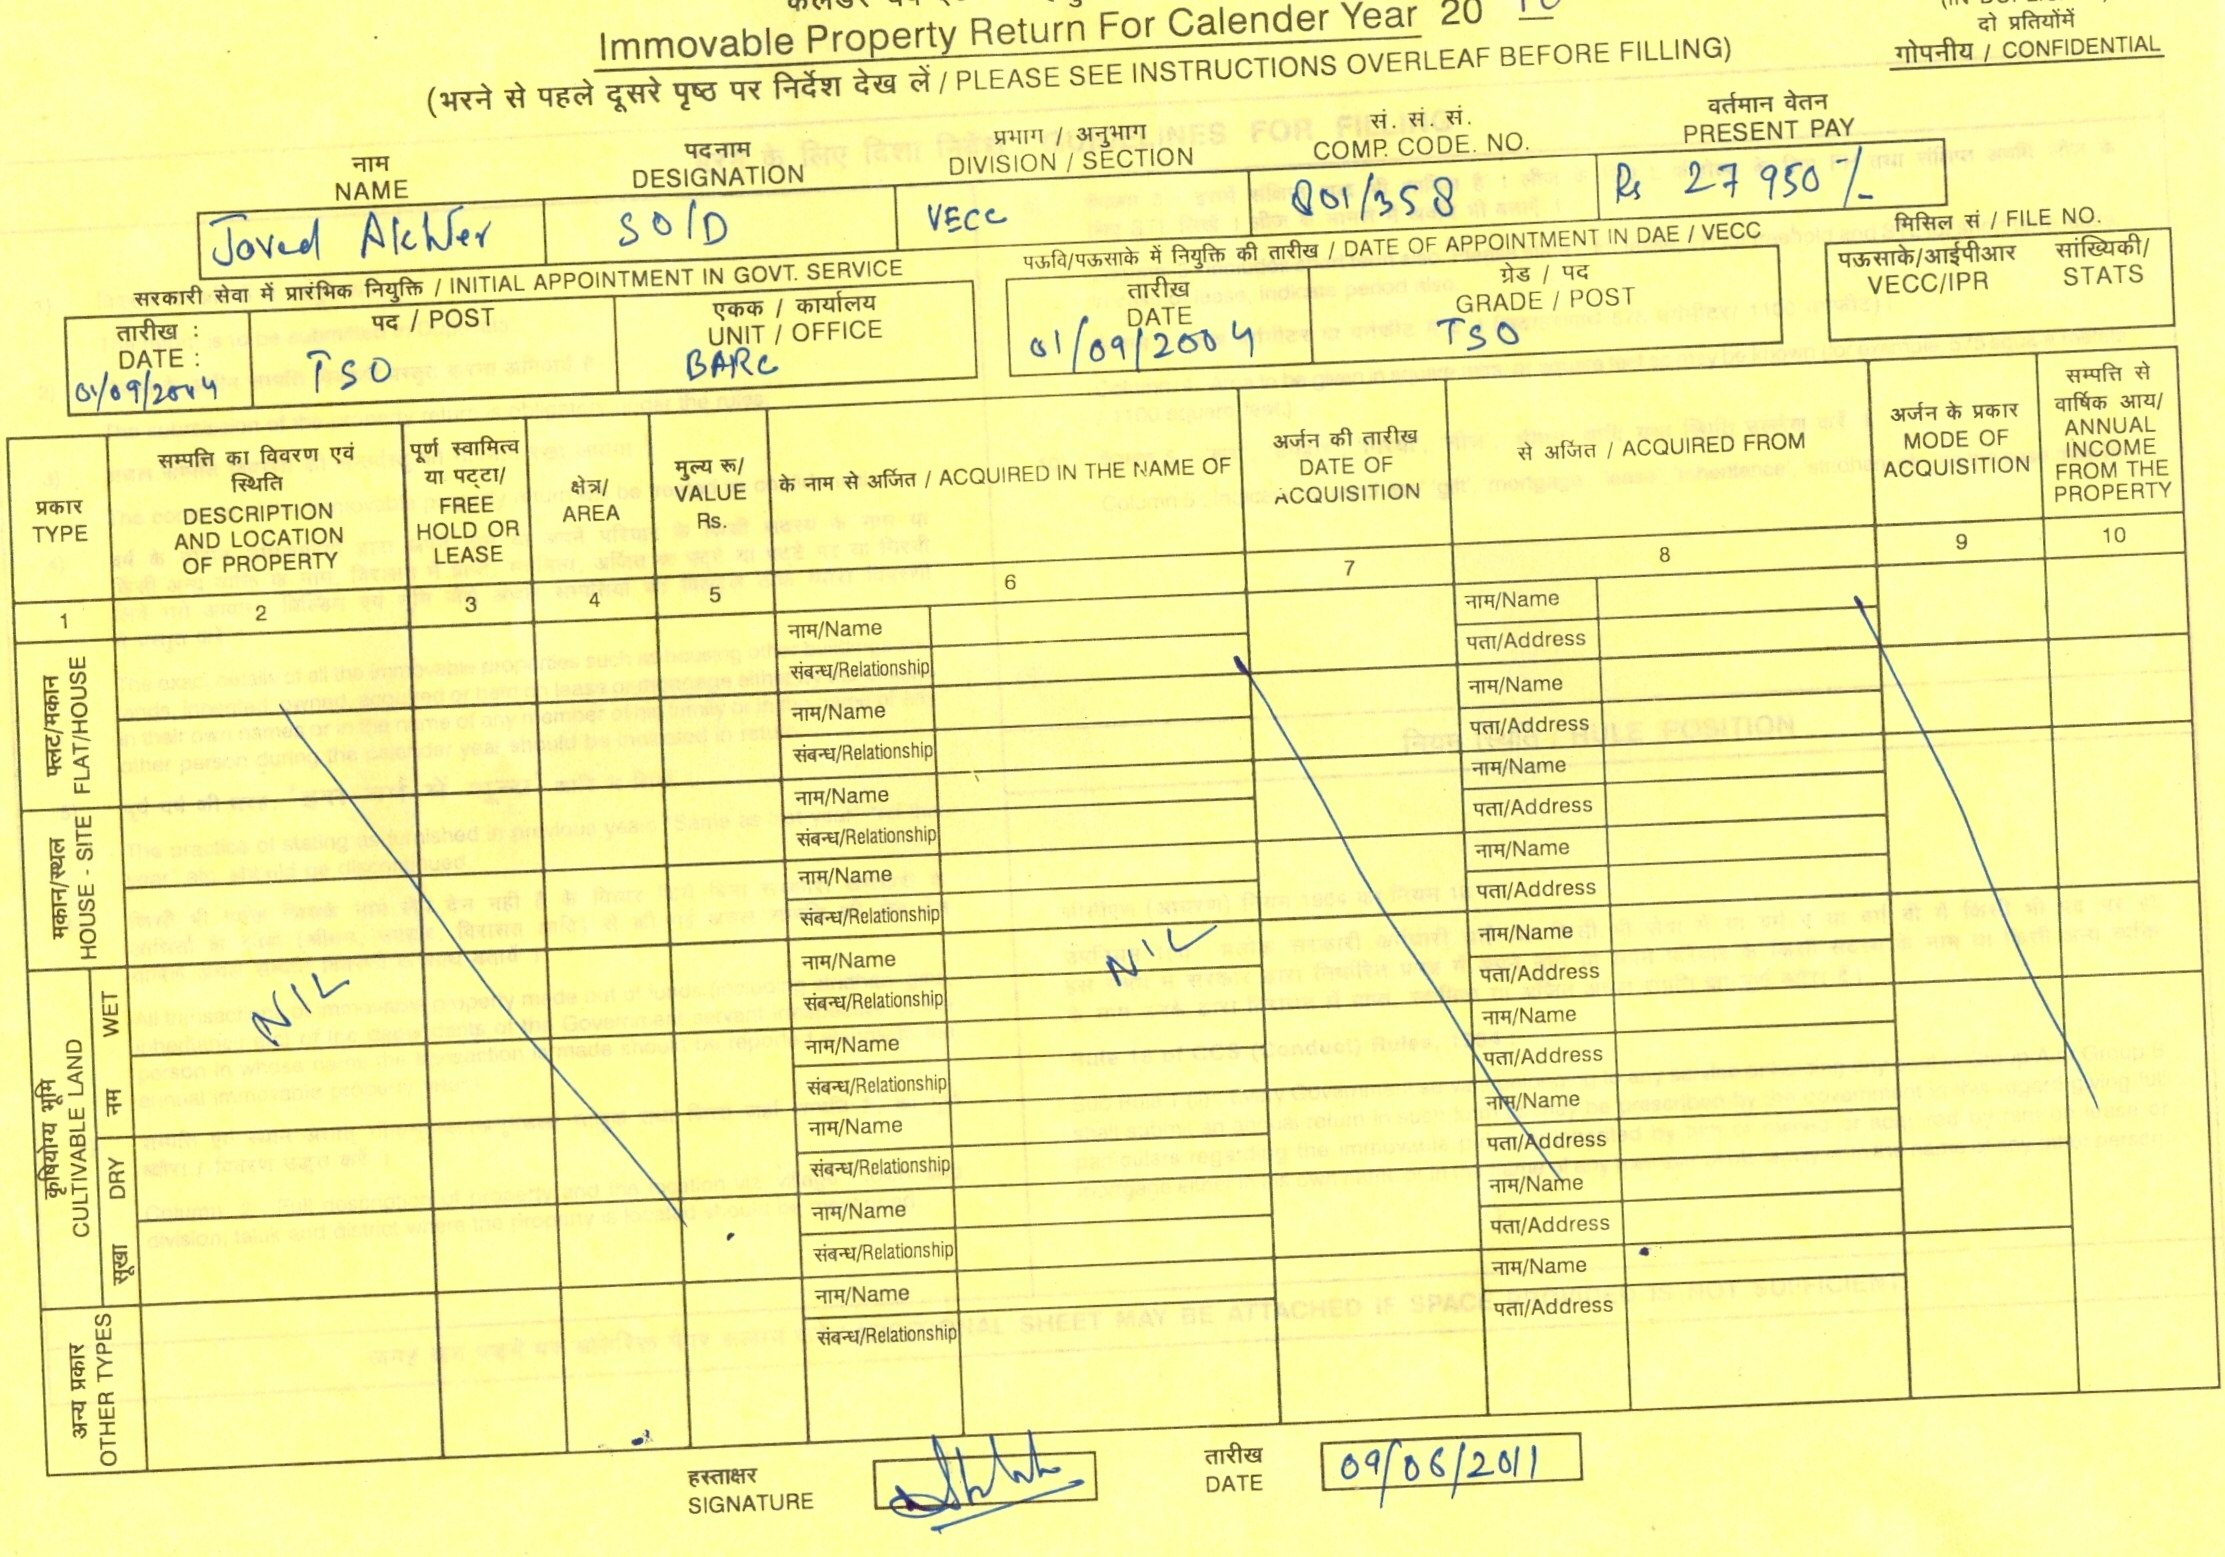 Immovable Property Return For Calender Year 20 10
दो प्रतियोंमें
गोपनीय / CONFIDENTIAL
(भरने से पहले दूसरे पृष्ठ पर निर्देश देख लें / PLEASE SEE INSTRUCTIONS OVERLEAF BEFORE FILLING)
नाम
NAME
पदनाम
DESIGNATION
प्रभाग / अनुभाग
DIVISION / SECTION
सं. सं. सं.
COMP. CODE. NO.
वर्तमान वेतन
PRESENT PAY
Javed Akhter
SO/D
VECC
801/358
Rs 27950/-
सरकारी सेवा में प्रारंभिक नियुक्ति / INITIAL APPOINTMENT IN GOVT. SERVICE
पऊवि/पऊसाके में नियुक्ति की तारीख / DATE OF APPOINTMENT IN DAE / VECC
मिसिल सं / FILE NO.
तारीख :
DATE :
01/09/2004
पद / POST
TSO
एकक / कार्यालय
UNIT / OFFICE
BARC
तारीख
DATE
01/09/2004
ग्रेड / पद
GRADE / POST
TSO
पऊसाके/आईपीआर
VECC/IPR
सांख्यिकी/
STATS
प्रकार
TYPE
सम्पत्ति का विवरण एवं
स्थिति
DESCRIPTION
AND LOCATION
OF PROPERTY
पूर्ण स्वामित्व
या पट्टा/
FREE
HOLD OR
LEASE
क्षेत्र/
AREA
मुल्य रू/
VALUE
Rs.
के नाम से अर्जित / ACQUIRED IN THE NAME OF
अर्जन की तारीख
DATE OF
ACQUISITION
से अजित / ACQUIRED FROM
अर्जन के प्रकार
MODE OF
ACQUISITION
सम्पत्ति से
वार्षिक आय/
ANNUAL
INCOME
FROM THE
PROPERTY
1
2
3
4
5
6
7
8
9
10
फ्लट/मकान
FLAT/HOUSE
मकान/स्थल
HOUSE - SITE
कृषियोग्य भूमि
CULTIVABLE LAND
नम WET
सूखा DRY
अन्य प्रकार
OTHER TYPES
नाम/Name
संबन्ध/Relationship
नाम/Name
संबन्ध/Relationship
नाम/Name
संबन्ध/Relationship
नाम/Name
संबन्ध/Relationship
नाम/Name
संबन्ध/Relationship
नाम/Name
संबन्ध/Relationship
नाम/Name
संबन्ध/Relationship
नाम/Name
संबन्ध/Relationship
नाम/Name
संबन्ध/Relationship
नाम/Name
पता/Address
नाम/Name
पता/Address
नाम/Name
पता/Address
नाम/Name
पता/Address
नाम/Name
पता/Address
नाम/Name
पता/Address
नाम/Name
पता/Address
नाम/Name
पता/Address
नाम/Name
पता/Address
NIL
NIL
हस्ताक्षर
SIGNATURE
तारीख
DATE
09/06/2011